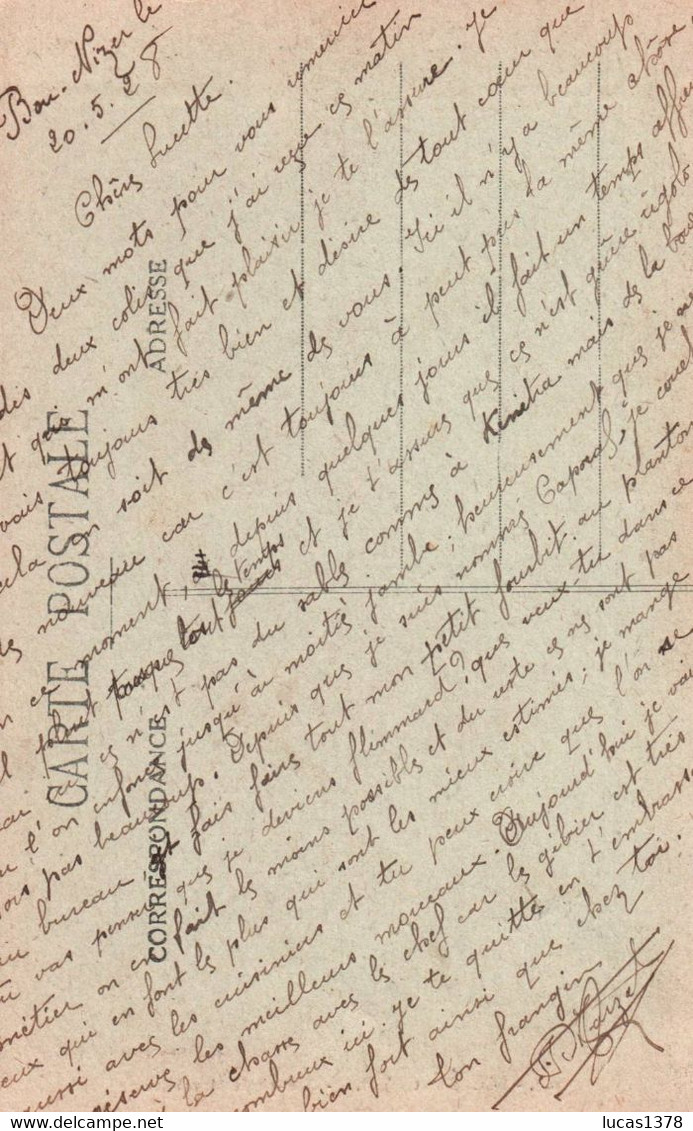 Bou-Nizer le
20.5.28
Chère Lucette.
Deux mots pour vous remercier
des deux colis que j'ai reçus ce matin
et qui m'ont fait plaisir je te l'assure. Je
vais toujours très bien et désire de tout coeur que
cela en soit de même de vous. Ici il n'y a beaucoup
de nouveau car c'est toujours à peut près la même chose,
en ce moment, depuis quelques jours il fait un temps affreux
il pleut presque tout le temps et je t'assure que ce n'est guère rigolo
car ici ce n'est pas du sable comme à Kenitra mais de la boue
ou l'on enfonce jusqu'à moitié jambe; heureusement que je ne
sors pas beaucoup. Depuis que je suis nommé Caporal je couche
au bureau et fais faire tout mon petit fourbit au planton
tu vas penser que je deviens flemmard? que veux-tu dans ce
métier on en fait le moins possible et du reste ce ne sont pas
ceux qui en font le plus qui sont les mieux estimés; je mange
aussi avec les cuisiniers et tu peux croire que l'on se
réserve les meilleurs morceaux. Aujourd'hui je vais
à la chasse avec le chef car le gibier est très
nombreux ici. Je te quitte en t'embrassant
bien fort ainsi que chez toi.
ton frangin
CARTE POSTALE
CORRESPONDANCE
ADRESSE
lucas1378